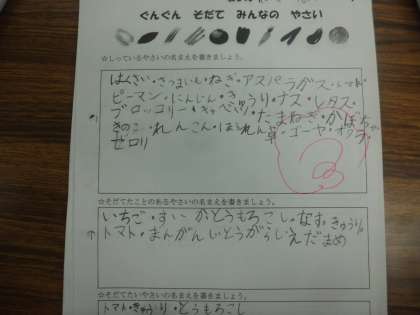 ぐんぐん そだて みんなの やさい
☆しっているやさいの名まえを書きましょう。
はくさい・さつまいも・ねぎ・アスパラガス・
ピーマン・にんじん・きゅうり・ナス・レタス・
ブロッコリー・キャベツ・たまねぎ・かぼちゃ
きのこ・れんこん・ほうれん草・ゴーヤ・オクラ・
セロリ
☆そだてたことのあるやさいの名まえを書きましょう。
いちご・すいか・とうもろこし・なす・きゅうり
トマト・まんがんじとうがらし・えだまめ
☆そだてたいやさいの名まえを書きましょう。
トマト・きゅうり・とうもろこし